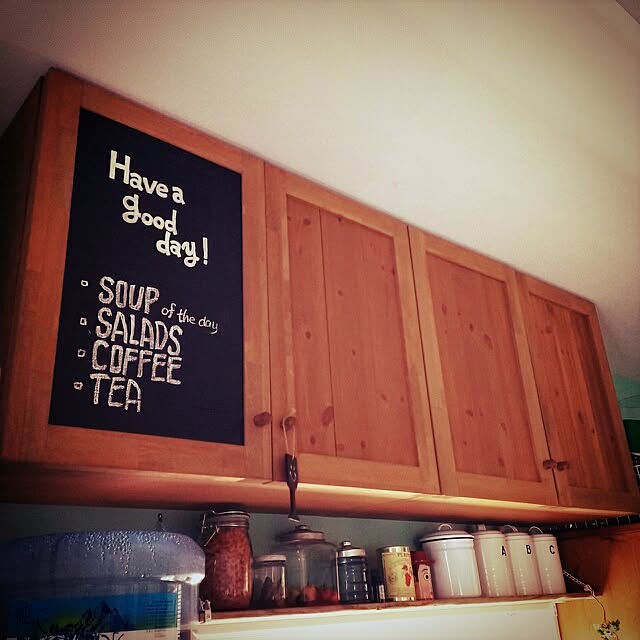 Have a
good
day!
SOUP of the day
SALADS
COFFEE
TEA
A
B
C